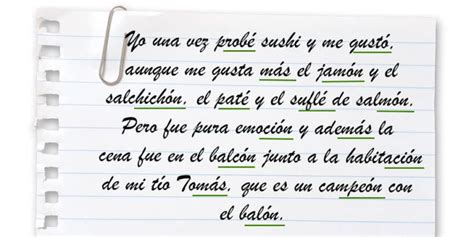 Yo una vez probé sushi y me gustó,
aunque me gusta más el jamón y el
salchichón, el paté y el suflé de salmón.
Pero fue pura emoción y además la
cena fue en el balcón junto a la habitación
de mi tío Tomás, que es un campeón con
el balón.